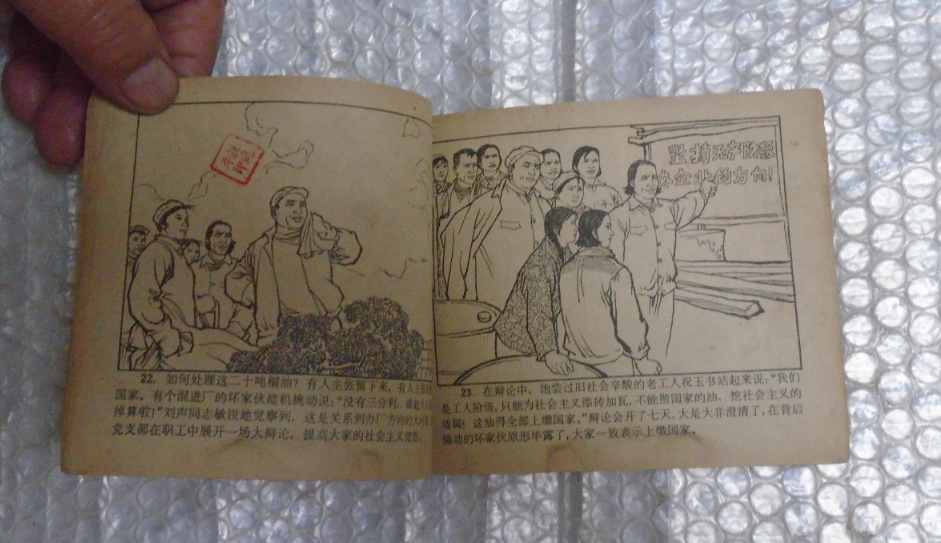 22. 如何处理这二十吨桐油？有人主张留下来，有人主张
国家。有个混进厂的坏家伙趁机挑动说：“没有三分利，谁起
掉算啦！”刘声同志敏锐地觉察到，这是关系到办厂方向的大
党支部在职工中展开一场大辩论，提高大家的社会主义觉悟。
坚持无产阶级
办企业的方向！
23. 在辩论中，饱尝过旧社会辛酸的老工人祝玉书站起来说：“我们
是工人阶级，只能为社会主义添砖加瓦，不能揩国家的油，挖社会主义的
墙脚！这油得全部上缴国家。”辩论会开了七天，大是大非澄清了，在背后
煽动的坏家伙原形毕露了，大家一致表示上缴国家。